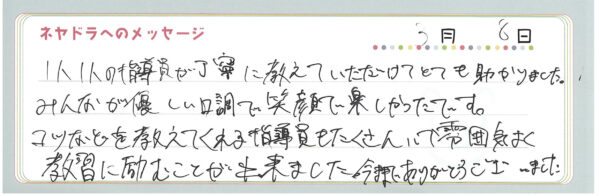 ネヤドラへのメッセージ 3月8日
1人1人の指導員が丁寧に教えていただけてとても助かりました。
みんなが優しい口調で笑顔で楽しかったです。
コツなどを教えてくれる指導員もたくさんいて雰囲気よく
教習に励むことが出来ました。今までありがとうございました